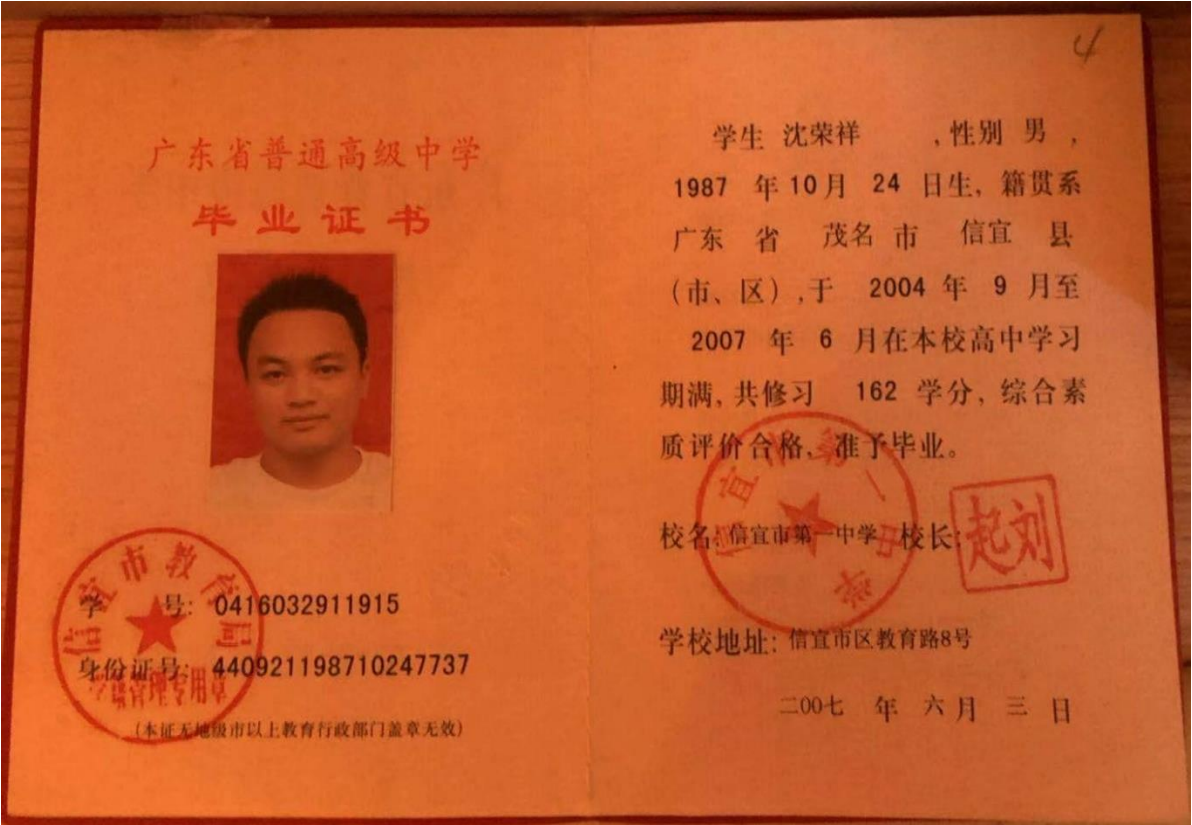 广东省普通高级中学
毕业证书
信宜市教育局
学籍管理专用章
学 号: 0416032911915
身份证号: 440921198710247737
(本证无地级市以上教育行政部门盖章无效)
4
学生 沈荣祥 , 性别 男 ,
1987 年 10 月 24 日生, 籍贯系
广东 省 茂名 市 信宜 县
(市、区) ,于 2004 年 9 月至
2007 年 6 月在本校高中学习
期满, 共修习 162 学分, 综合素
质评价合格, 准予毕业。
信宜市第一中学
校名: 信宜市第一中学 校长:
起刘
学校地址: 信宜市区教育路8号
二00七 年 六 月 三 日